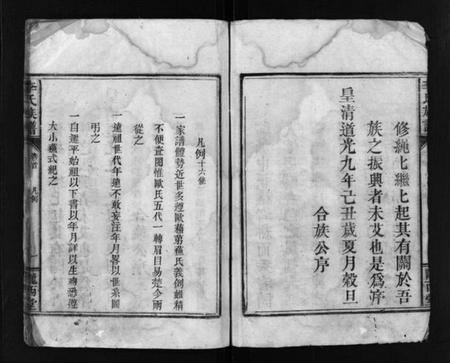 修繩七繼七起其有關於吾
族之振興者未艾也是爲序
皇清道光九年己丑歲夏月穀旦
合族公序
凡例十六條
一家譜體勢近世多遵歐蘇第蘇氏義例雖精
不便查閱惟歐氏五代一轉眉目易楚今兩
從之
一遠祖世代年遠不敢妄注年月畧以世系圖
弔之
一自遷平始祖以下書以年月詳以生
大小蘇式紀之
李氏族譜
卷首
凡例
一